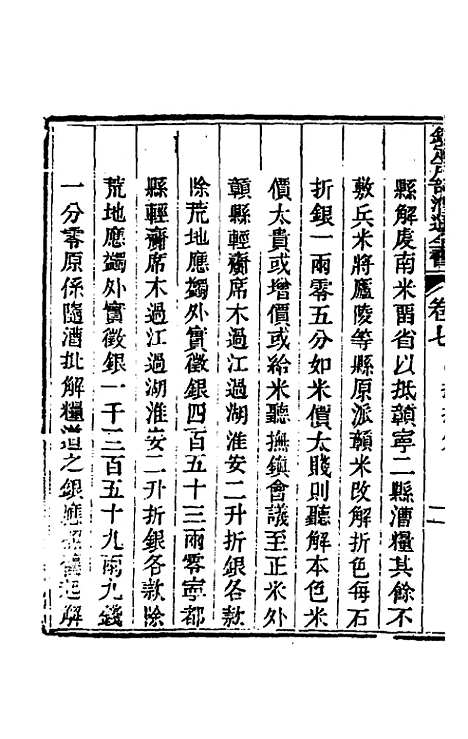 欽定戶部漕運全書
卷七
縣解虔南米畱省以抵贛寧二縣漕糧其餘不
敷兵米將廬陵等縣原派贛米改解折色每石
折銀一兩零五分如米價太賤則聽解本色米
價太貴或增價或給米聽撫鎮會議至正米外
贛縣輕齎席木過江過湖淮安二升折銀各款
除荒地應蠲外實徵銀四百五十三兩零寧都
縣輕齎席木過江過湖淮安二升折銀各款除
荒地應蠲外實徵銀一千三百五十九兩九錢
一分零原係隨漕批解糧道之銀應
解